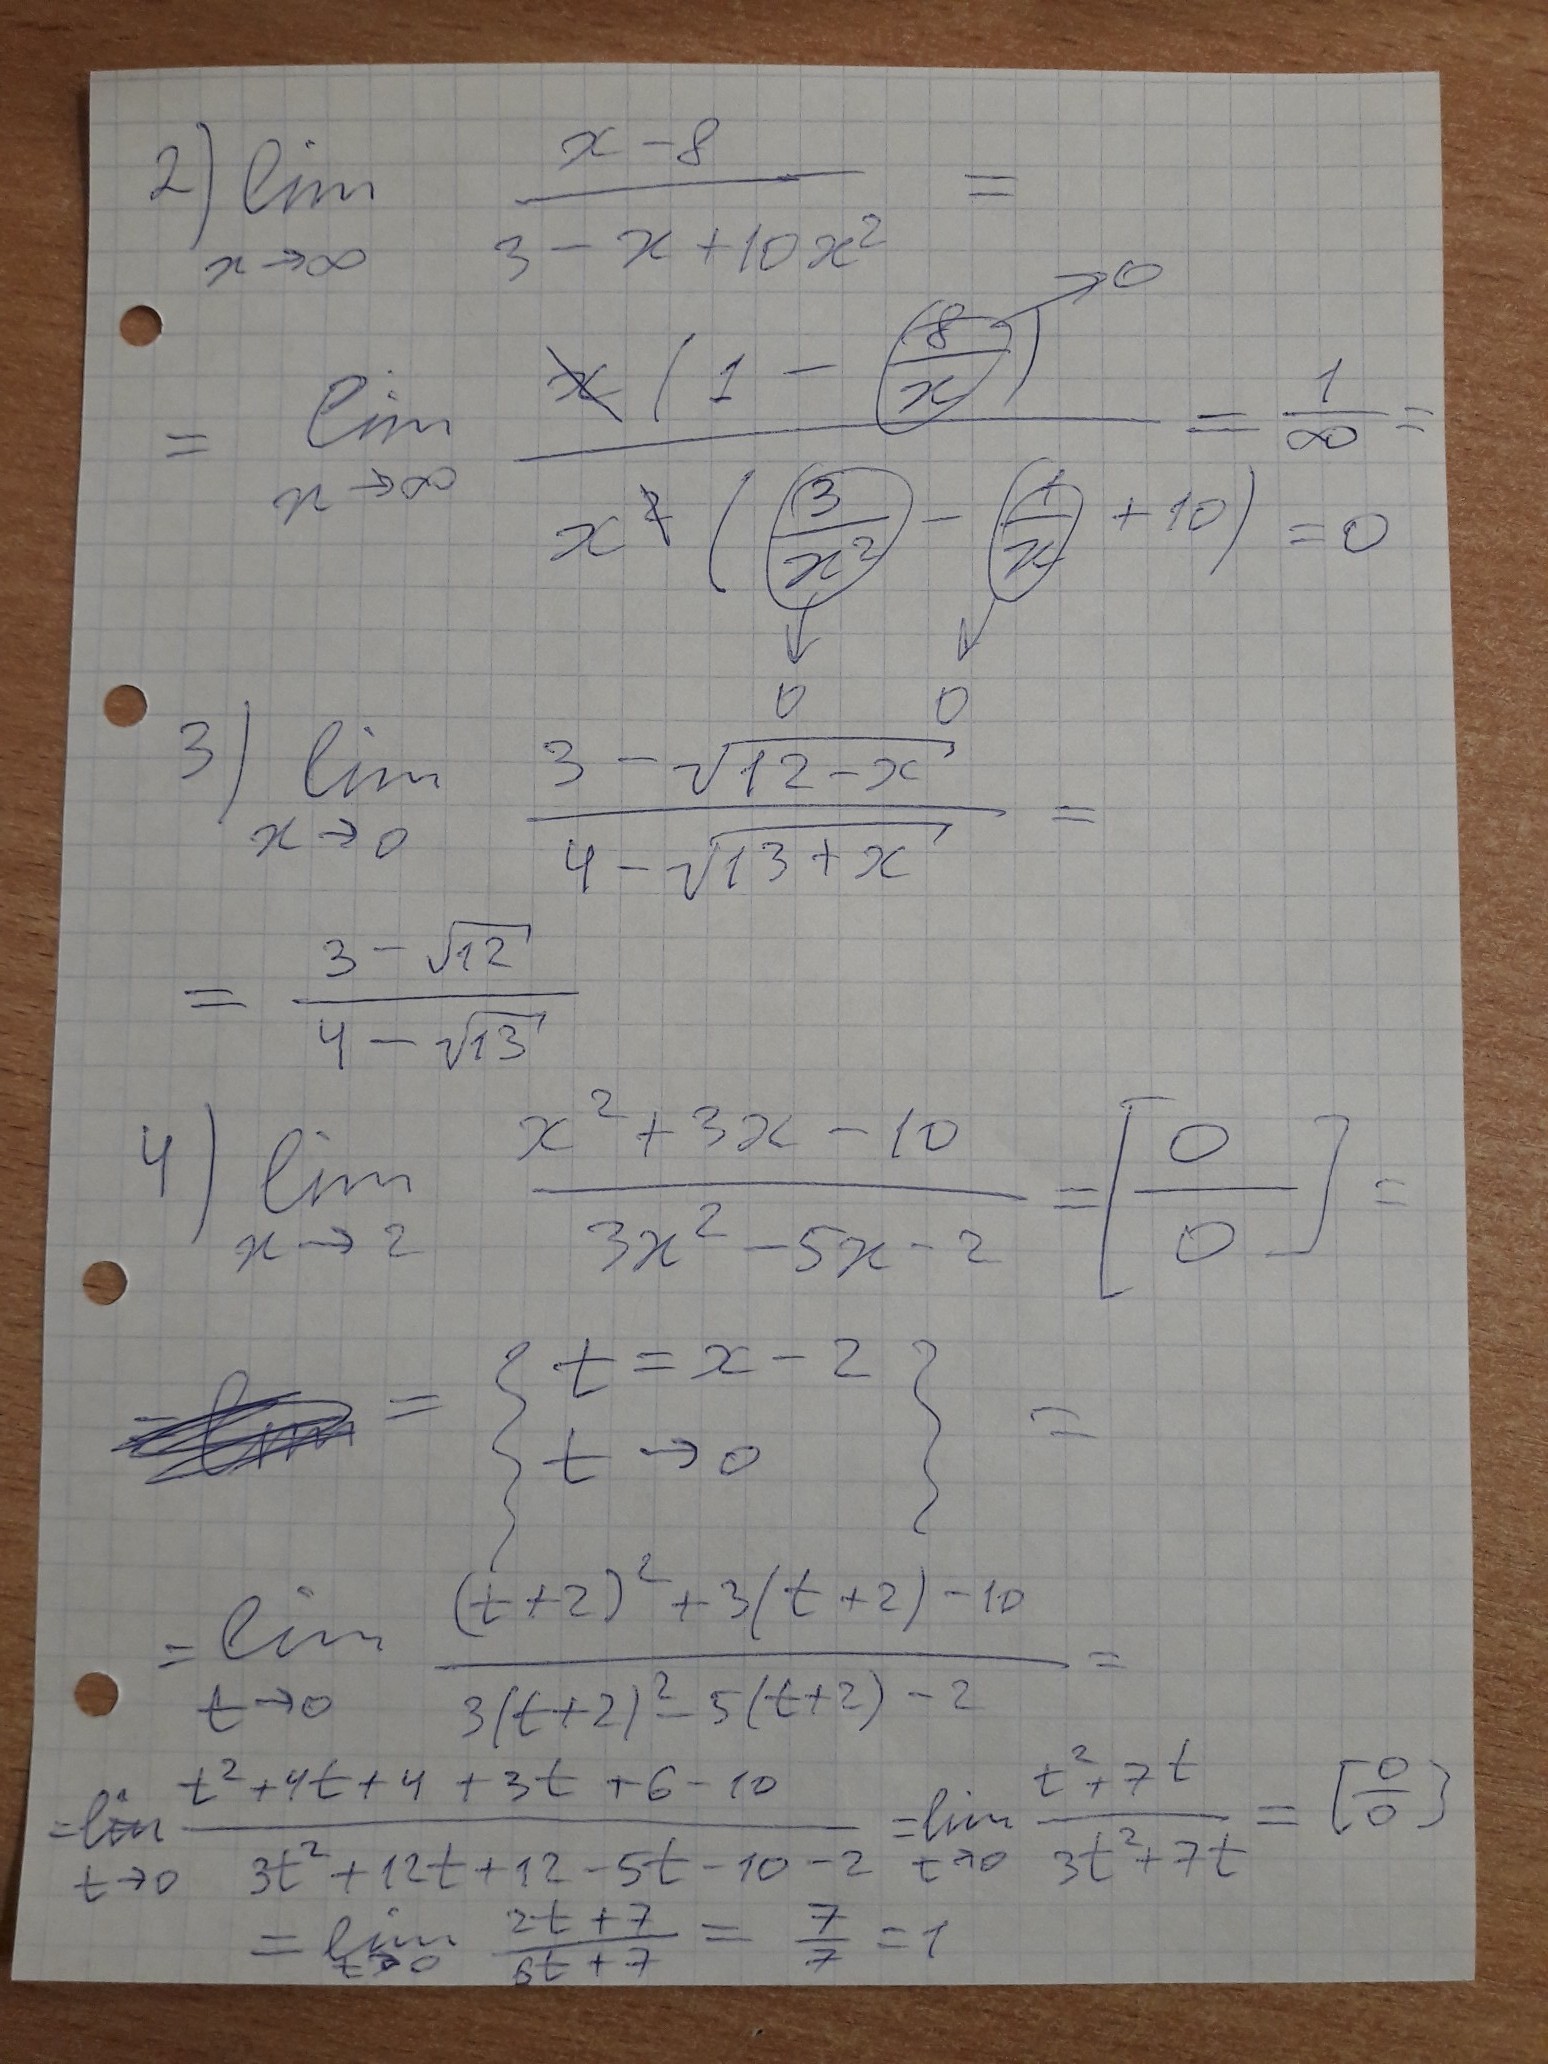 2) lim x→∞ (x - 8)/(3 - x + 10x²) =
= lim x→∞ x(1 - 8/x)/(x²(3/x² - 1/x + 10)) = 1/∞ =
= 0
→ 0
0 0
3) lim x→0 (3 - √(12 - x))/(4 - √(13 + x)) =
= (3 - √12)/(4 - √13)
4) lim x→2 (x² + 3x - 10)/(3x² - 5x - 2) = [0/0] =
= { t = x - 2
t → 0 } =
= lim t→0 ((t+2)² + 3(t+2) - 10)/(3(t+2)² - 5(t+2) - 2) =
= lim t→0 (t² + 4t + 4 + 3t + 6 - 10)/(3t² + 12t + 12 - 5t - 10 - 2) = lim t→0 (t² + 7t)/(3t² + 7t) = [0/0]
= lim t→0 (2t + 7)/(6t + 7) = 7/7 = 1